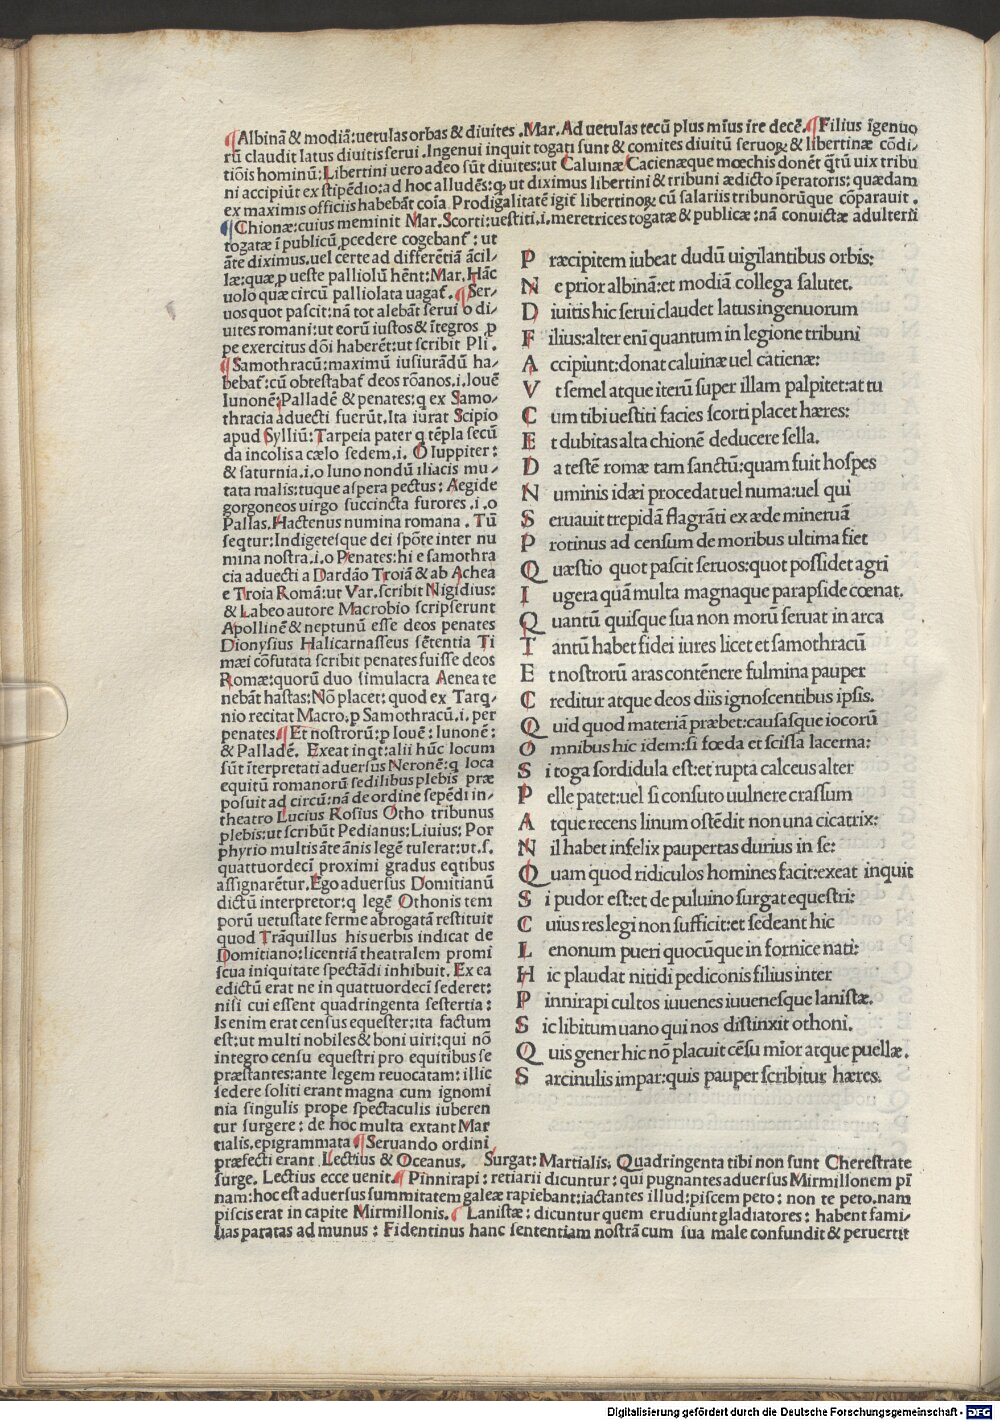 ¶Albinā & modiā:uetulas orbas & diuites .Mar. Ad uetulas tecū plus mīus īre decē.¶Filius īgenuo
rū claudit latus diuitis serui .Ingenui inquit togati sunt & comites diuitū seruoꝝ & libertinæ cōdi-
tiōis hominū:Libertini uero adeo sūt diuites:ut Caluinæ Cacienæque mœchis donēt q̄tū uix tribu
ni accipiūt ex stipēdio:ad hoc alludēs:ꝙ ut diximus libertini & tribuni ædicto īperatoris: quædam
ex maximis officiis habebāt cōia Prodigalitatē igit̄ libertinoꝝ cū salariis tribunorūque cōparauit .
¶Chionæ:cuius meminit Mar.Scorti:uestiti.i.meretrices togatæ & publicæ:nā conuictæ adulterii
togatæ ī publicū ꝓcedere cogebant̄ : ut
āte diximus.uel certe ad differētiā ācil-
læ:quæ ꝓ ueste palliolū hēnt:Mar.Hāc
uolo quæ circū palliolata uagat̄.¶Ser-
uos quot pascit:nā tot alebāt serui o di-
uites romani:ut eorū iustos & īteģros ꝓ
pe exercitus dōi haberēt:ut scribit Pli .
¶Samothracū:maximū iusiurādū ha-
bebat̄:cū obtestabat̄ deos rōanos.i.Iouē
Iunonē:Palladē & penates:q ex Samo-
thracia aduecti fuerūt.Ita iurat Scipio
apud Sylliū:Tarpeia pater q tēpla secū
da incolis a cælo sedem.i. O Iuppiter:
& saturnia.i.o Iuno nondū iliacis mu-
tata malis:tuque aspera pectus: Aegide
gorgoneos uirgo succincta furores .i.o
Pallas.Hactenus numina romana . Tū
seqtur:Indigetesque dei spōte inter nu
mina nostra.i.o Penates:hi e samothra
cia aduecti a Dardāo Troiā & ab Achea
e Troia Romā:ut Var.scribit Nigidius:
& Labeo autore Macrobio scripserunt
Apollinē & neptunū esse deos penates
Dionysius Halicarnasseus sētentia Ti
mæi cōfutata scribit penates fuisse deos
Romæ:quorū duo simulacra Aenea te
nebāt hastas:Nō placet: quod ex Tarq-
nio recitat Macro.ꝑ Samothracū.i. per
penates.¶Et nostrorū:ꝑ Iouē: Iunonē:
& Palladē. Exeat inqt:alii hūc locum
sūt īterpretati aduersus Neronē:q loca
equitū romanorū sedilibus plebis præ
posuit ad circū:nā de ordine sepēdi in-
theatro Lucius Rosius Otho tribunus
plebis:ut scribūt Pedianus:Liuius: Por
phyrio multis āte ānis legē tulerat:ut.s.
quattuordecī proximi gradus eqtibus
assignarētur.Ego aduersus Domitianū
dictū interpretor:q legē Othonis tem
porū uetustate ferme abrogatā restituit
quod Trāquillus his uerbis indicat de
Domitiano:licentiā theatralem promi
scua iniquitate spectādi inhibuit. Ex ea
edictū erat ne in quattuordecī sederet:
nisi cui essent quadringenta sestertia:
Is enim erat census equester:ita factum
est:ut multi nobiles & boni uiri:qui nō
integro censu equestri pro equitibus se
præstantes:ante legem reuocatam: illic
sedere soliti erant magna cum ignomi
nia singulis prope spectaculis iuberen
tur surgere: de hoc multa extant Mar
tialis.epigrammata ¶Seruando ordini
præfecti erant Lectius & Oceanus. Surgat: Martialis. Quadringenta tibi non sunt Cherestrate
surge. Lectius ecce uenit.¶Pinnirapi: retiarii dicuntur: qui pugnantes aduersus Mirmillonem pī
nam:hoc est aduersus summitatem galeæ rapiebant:iactantes illud:piscem peto: non te peto.nam
piscis erat in capite Mirmillonis. ¶Lanistæ: dicuntur quem erudiunt gladiatores: habent fami-
lias paratas ad munus : Fidentinus hanc sententiam nostrā cum sua male confundit & peruertit
P ræcipitem iubeat dudū uigilantibus orbis:
N e prior albinā:et modiā collega salutet.
D iuitis hic serui claudet latus ingenuorum
F ilius:alter enī quantum in legione tribuni
A ccipiunt:donat caluinæ uel catienæ:
V t semel atque iterū super illam palpitet:at tu
C um tibi uestiti facies scorti placet hæres:
E t dubitas alta chionē deducere sella.
D a testē romæ tam sanctū:quam fuit hospes
N uminis idæi procedat uel numa:uel qui
S eruauit trepidā flagrāti ex æde mineruā
P rotinus ad censum de moribus ultima fiet
Q uæstio quot pascit seruos:quot possidet agri
I ugera quā multa magnaque parapside cœnat.
Q uantū quisque sua non morū seruat in arca
T antū habet fidei iures licet et samothracū
E t nostrorū aras contēnere fulmina pauper
C reditur atque deos diis ignoscentibus ipsis.
Q uid quod materiā præbet:causasque iocorū
O mnibus hic idem:si fœda et scissa lacerna:
S i toga sordidula est:et rupta calceus alter
P elle patet:uel si consuto uulnere crassum
A tque recens linum ostēdit non una cicatrix:
N il habet infelix paupertas durius in se:
Q uam quod ridiculos homines facit:exeat inquit
S i pudor est:et de puluino surgat equestri:
C uius res legi non sufficit:et sedeant hic
L enonum pueri quocūque in fornice nati:
H ic plaudat nitidi pediconis filius inter
P innirapi cultos iuuenes iuuenesque lanistæ.
S ic libitum uano qui nos distinxit othoni.
Q uis gener hic nō placuit cēsu mīor atque puellæ.
S arcinulis impar:quis pauper scribitur hæres.
Digitalisierung gefördert durch die Deutsche Forschungsgemeinschaft - DFG